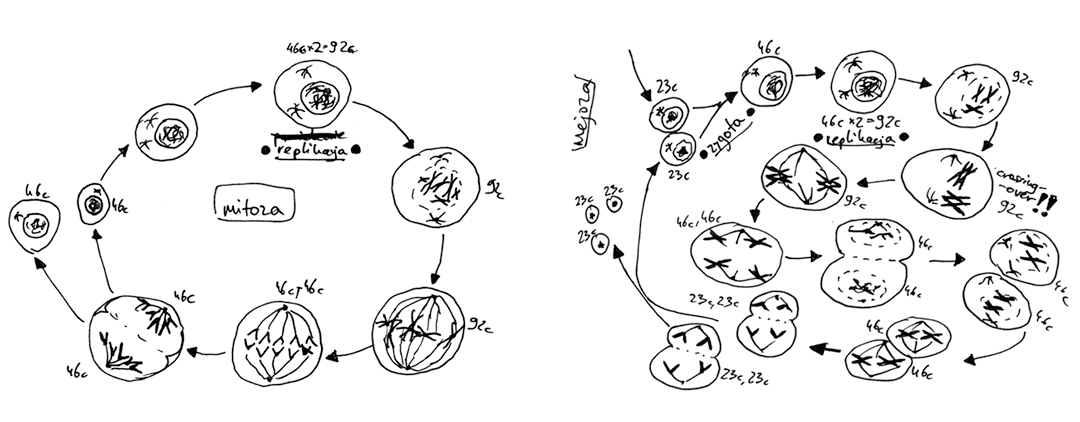 46c×2=92c
replikacja
mitoza
92
92c
46c, 46c
46c
46c
46c
46c
Mejoza
23c
23c
zygota
46c
46c×2=92c
replikacja
92c
crossing-
-over!!
92c
92c
46c, 46c
46c
46c
46c
46c
46c
46c
23c, 23c
23c, 23c
23c
23c
23c